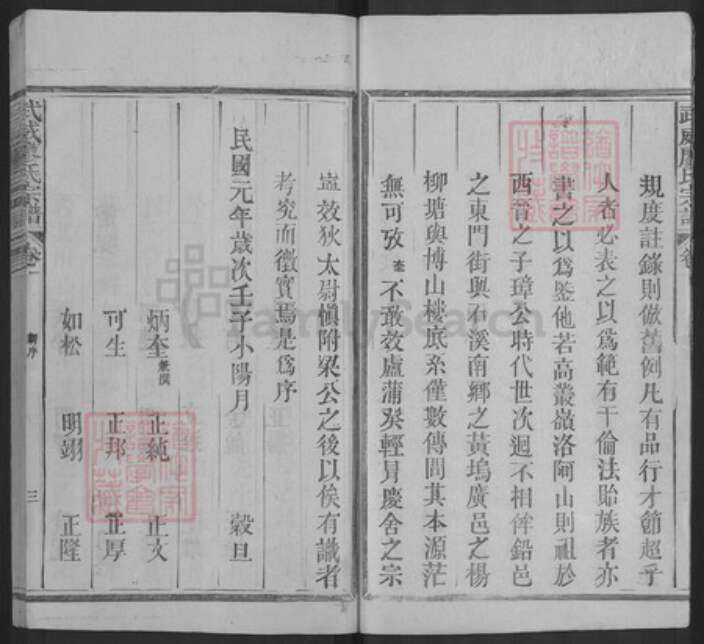 武威廖氏宗譜 卷
規度註錄則倣舊例凡有品行才節超乎
人者必表之以爲範有干倫法貽族者亦
書之以爲鑒他若高叢嶺洛阿山則祖於
西晉之子璋公時代世次迥不相侔鉛邑
之東門街與石溪南鄉之黃塢廣邑之楊
柳塘與博山樓底系僅數傳問其本源茫
無可攷奎不敢效盧蒲癸輕冒慶舍之宗
豈效狄太尉愼附梁公之後以俟有識者
考究而徵實焉是爲序
民國元年歲次壬子小陽月 穀旦
炳奎兼撰 正純 正文
可生 正邦 正厚
如松 明翊 正隆
武威廖氏宗譜 卷一 新序 三
FamilySearch